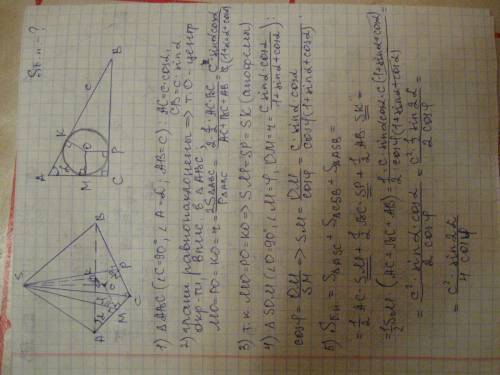 Sбп - ?
S A B C M P K O
A B C M P K O c
1) ΔABC (∠C=90°, ∠A=α, AB=c): AC=c·cosα,
CB=c·sinα
2) грани равнонаклонены => т. O - центр
окр-ти, впис. в ΔABC
MO=PO=KO=r= 2SΔABC / PΔABC = 2·½·AC·BC / (AC+BC+AB) = c² sinα cosα / c(1+sinα+cosα)
3) т.к. MO=PO=KO => SM=SP=SK (апофемы)
4) ΔSOM (∠O=90°, ∠M=φ, OM=r= c sinα cosα / (1+sinα+cosα)):
cosφ= OM/SM => SM= OM/cosφ = c sinα cosα / cosφ(1+sinα+cosα)
5) Sбп = SΔASC + SΔCSB + SΔASB =
= ½ AC·SM + ½ BC·SP + ½ AB·SK =
= ½ SM (AC+BC+AB) = ½ · c·sinα cosα·c(1+sinα+cosα) / cosφ(1+sinα+cosα) =
= c²·sinα·cosα / 2cosφ = c²·½ sin2α / 2cosφ =
= c²·sin2α / 4cosφ